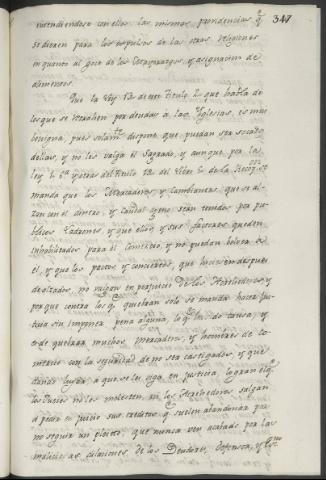 347
entendiendose con ellos las mismas providencias q.e
se dieren para los expulsos de las otras Religiones
en quanto al goce de los Vitalicios y asignacion de
alimentos.
Que la ley 13 de este titulo 2 que habla de
los que se retrahen por deudas a las Yglesias, es mas
benigna, pues solam.te dispone que puedan ser sacados
dellas, y no les valga el Sagrado, y aunque por las
ley 1. y otras del titulo 19 del libro 5 de la Recop.on se
manda que los Mercaderes, y Cambiantes que se al-
zan con el dinero, y caudal ageno sean tenidos por pu-
blicos Ladrones, y que ellos, y sus factores queden
inhabilitados para el Comercio, y no puedan bolver a
el, y que los pactos, y convenios, que hicieren despues
de alzados, no valgan en perjuicio de los Acrehedores, y
porque contra los q.e quiebran solo se manda hacer jus-
ticia sin imponer pena alguna,
que quiebran muchos mercaderes, y hombres de co-
mercio con la seguridad de no ser castigados, y que
dando lugar a que se les siga en justicia, logran el q.e
los Jueces no les molesten, ni los Acrehedores salgan
a pedir en juicio sus creditos q.e suelen abandonar por
no seguir un pleito, que nunca ven acabado por las
malicias, dilaciones de los Deudores, defensa, y